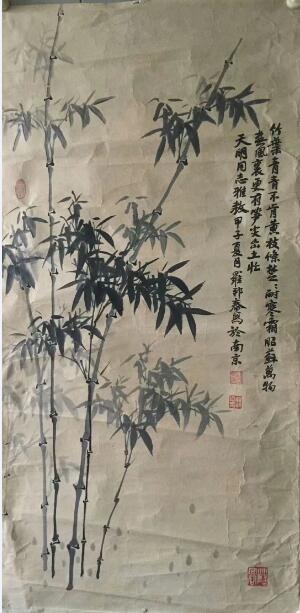 竹葉青青不肯黄枝條楚々耐寒霜昭蘇萬物
春風裏更有笋尖出土忙
天明同志雅教甲子夏月羅邦泰寫於南京